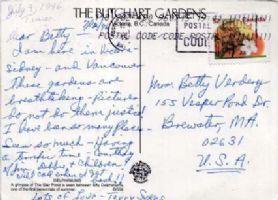 THE BUTCHART GARDENS
Victoria, B.C., Canada
July 3, 1996
POSTAL CODE/CODE POSTAL
POSTAL
CODE
Dear Betty
I am here in
Sidney - and Vancouver
These gardens are
breathtaking - Pictures
do not do them justice
I have been so many places
Seen so much - Having
a terrific time
Will call when I get
back!!
Lots of Love -
Mrs. Betty Verdery
155 Vesper Pond Dr
Brewster, MA
02631
U.S.A.
A glimpse of The Star Pond is seen between lofty Delphiniums
one of the first perennials of summer.